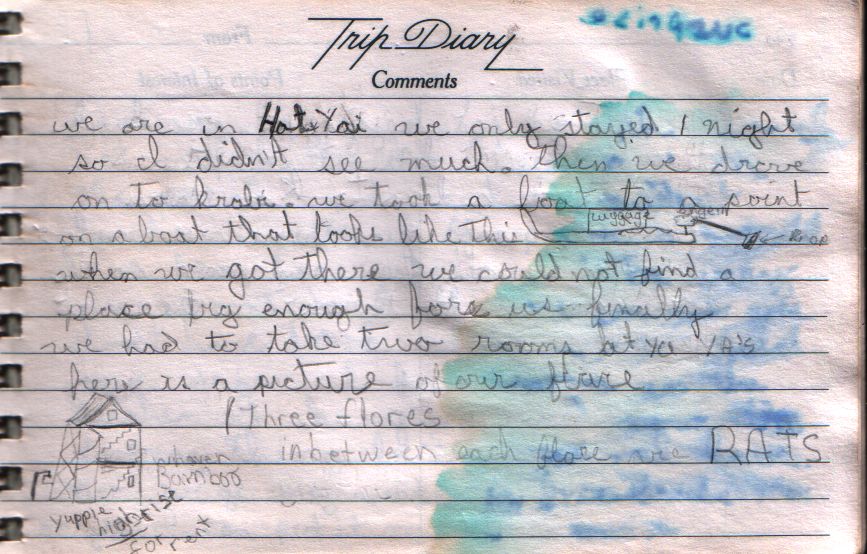 Trip Diary
Comments
we are in Hat Yai we only stayed 1 night
so I didn't see much. then we drove
on to krabi. we took a boat to a point
on a boat that looks like this
luggage
engent
when we got there we could not find a
place big enough fore us finally
we had to take two rooms at ya YA'S
here is a picture of our flare
Three flores
inbetween each flore are RATS
whoven
Bamboo
yuppie
highrise
for rent